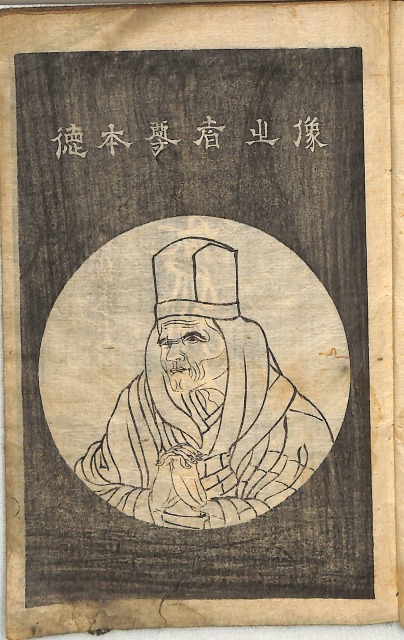 徳本尊者之像